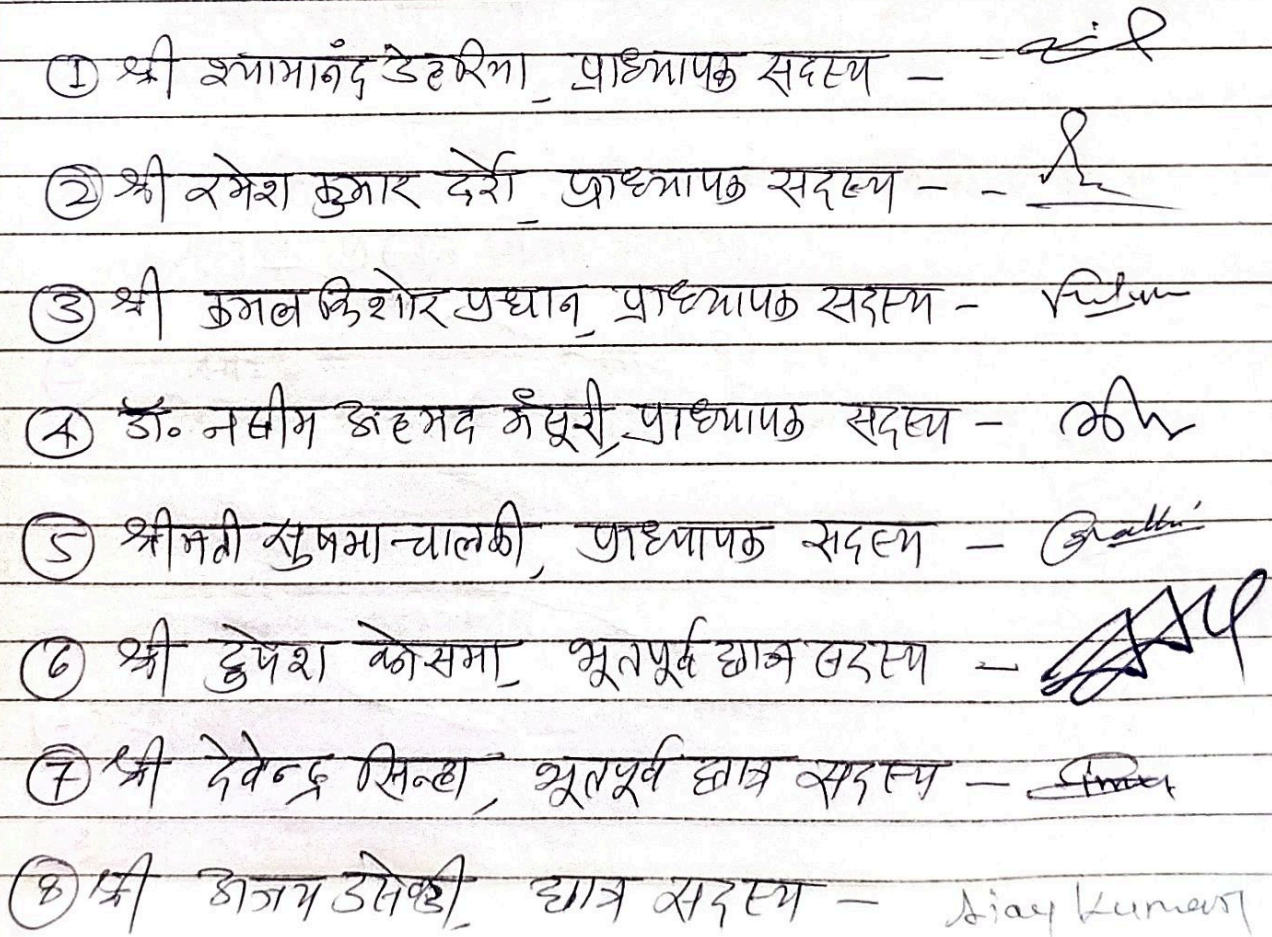 ① श्री श्यामानंद डेहरिया, प्राध्यापक सदस्य –
② श्री रमेश कुमार दर्रो, प्राध्यापक सदस्य – -
③ श्री कमल किशोर प्रधान, प्राध्यापक सदस्य –
④ डॉ. नसीम अहमद मंसूरी, प्राध्यापक सदस्य –
⑤ श्रीमती सुषमा चालकी, प्राध्यापक सदस्य –
⑥ श्री दुपेश कोसमा, भूतपूर्व छात्र सदस्य –
⑦ श्री देवेन्द्र सिन्हा, भूतपूर्व छात्र सदस्य –
⑧ श्री अजय, छात्र सदस्य – Ajay Kumar